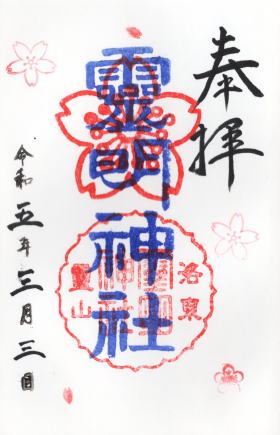 奉拝
靈明神社
洛東
靈山
令和五年三月三日